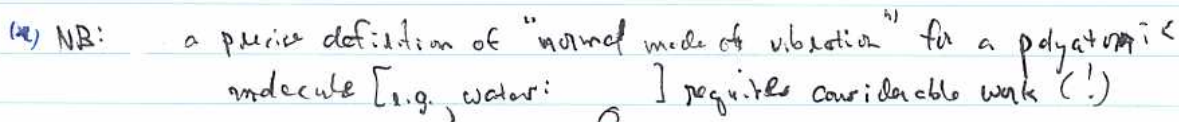 (**) NB: a precise definition of "normal mode of vibration" for a polyatomic
molecule [e.g., water: ] requires considerable work (!)